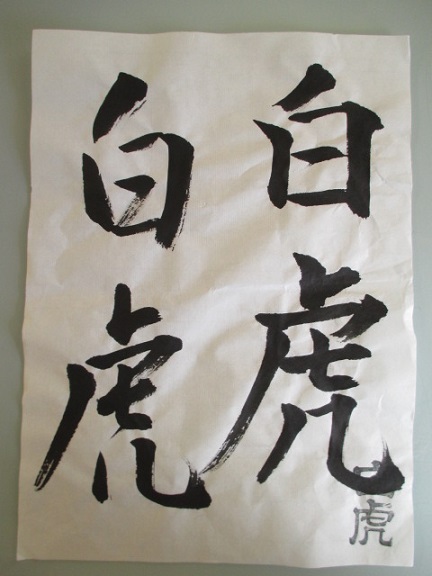 白虎
白虎
白虎